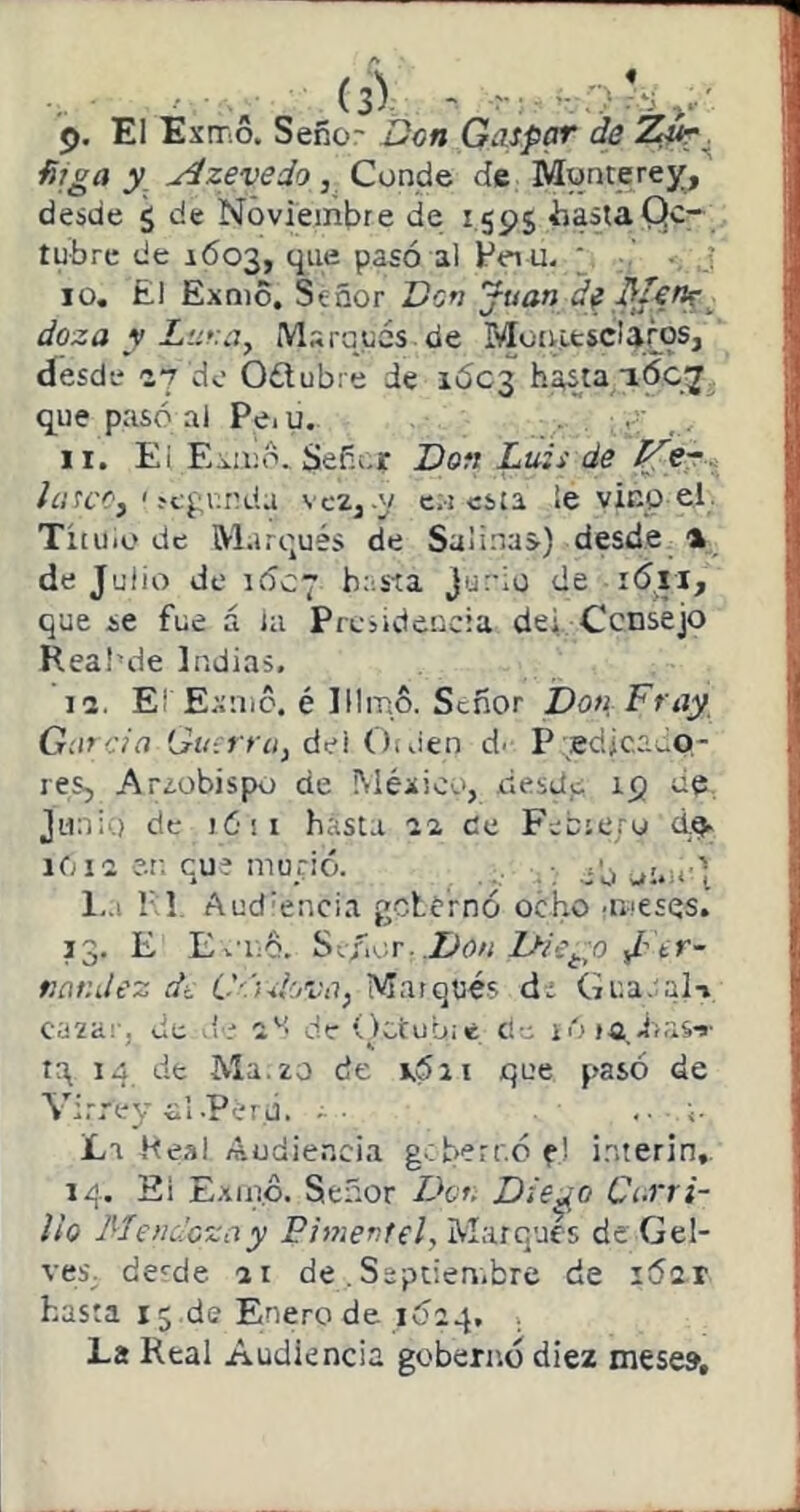 (3)
9. El Exmô. Señor Don Gaspar de Zúr-
ñiga y Azevedo, Conde de Monterey,
desde 5 de Noviembre de 1595 hasta Oc-
tubre de 1603, que pasó al Perú.
10. El Exmô. Señor Don Juan de Men-
doza y Luna, Marqués de Montesclaros,
desde 27 de Octubre de 1603 hasta 1607
que pasó al Perú.
11. El Exmô. Señor Don Luis de Ve-
lasco, (segunda vez, y en esta le vino el
Título de Marqués de Salinas) desde 2
de Julio de 1607 hasta Junio de 1611,
que se fue á la Presidencia del Consejo
Real de Indias.
12. El Exmô. é Illmô. Señor Don Fray
Garcia Guerra, del Orden de Predicado-
res, Arzobispo de México, desde 19 de
Junio de 1611 hasta 22 de Febrero de
1612 en que murió.
La Rl. Audiencia gobernó ocho meses.
13. El Exmô. Señor Don Diego Fer-
nandez de Córdova, Marqués de Guadal-
cazar, desde 28 de Octubre de 1612 has-
ta 14 de Marzo de 1621 que pasó de
Virrey al Perú.
La Real Audiencia gobernó el interin.
14. El Exmô. Señor Don Diego Carri-
llo Mendoza y Pimentel, Marqués de Gel-
ves, desde 21 de Septiembre de 1621
hasta 15 de Enero de 1624.
La Real Audiencia gobernó diez meses.